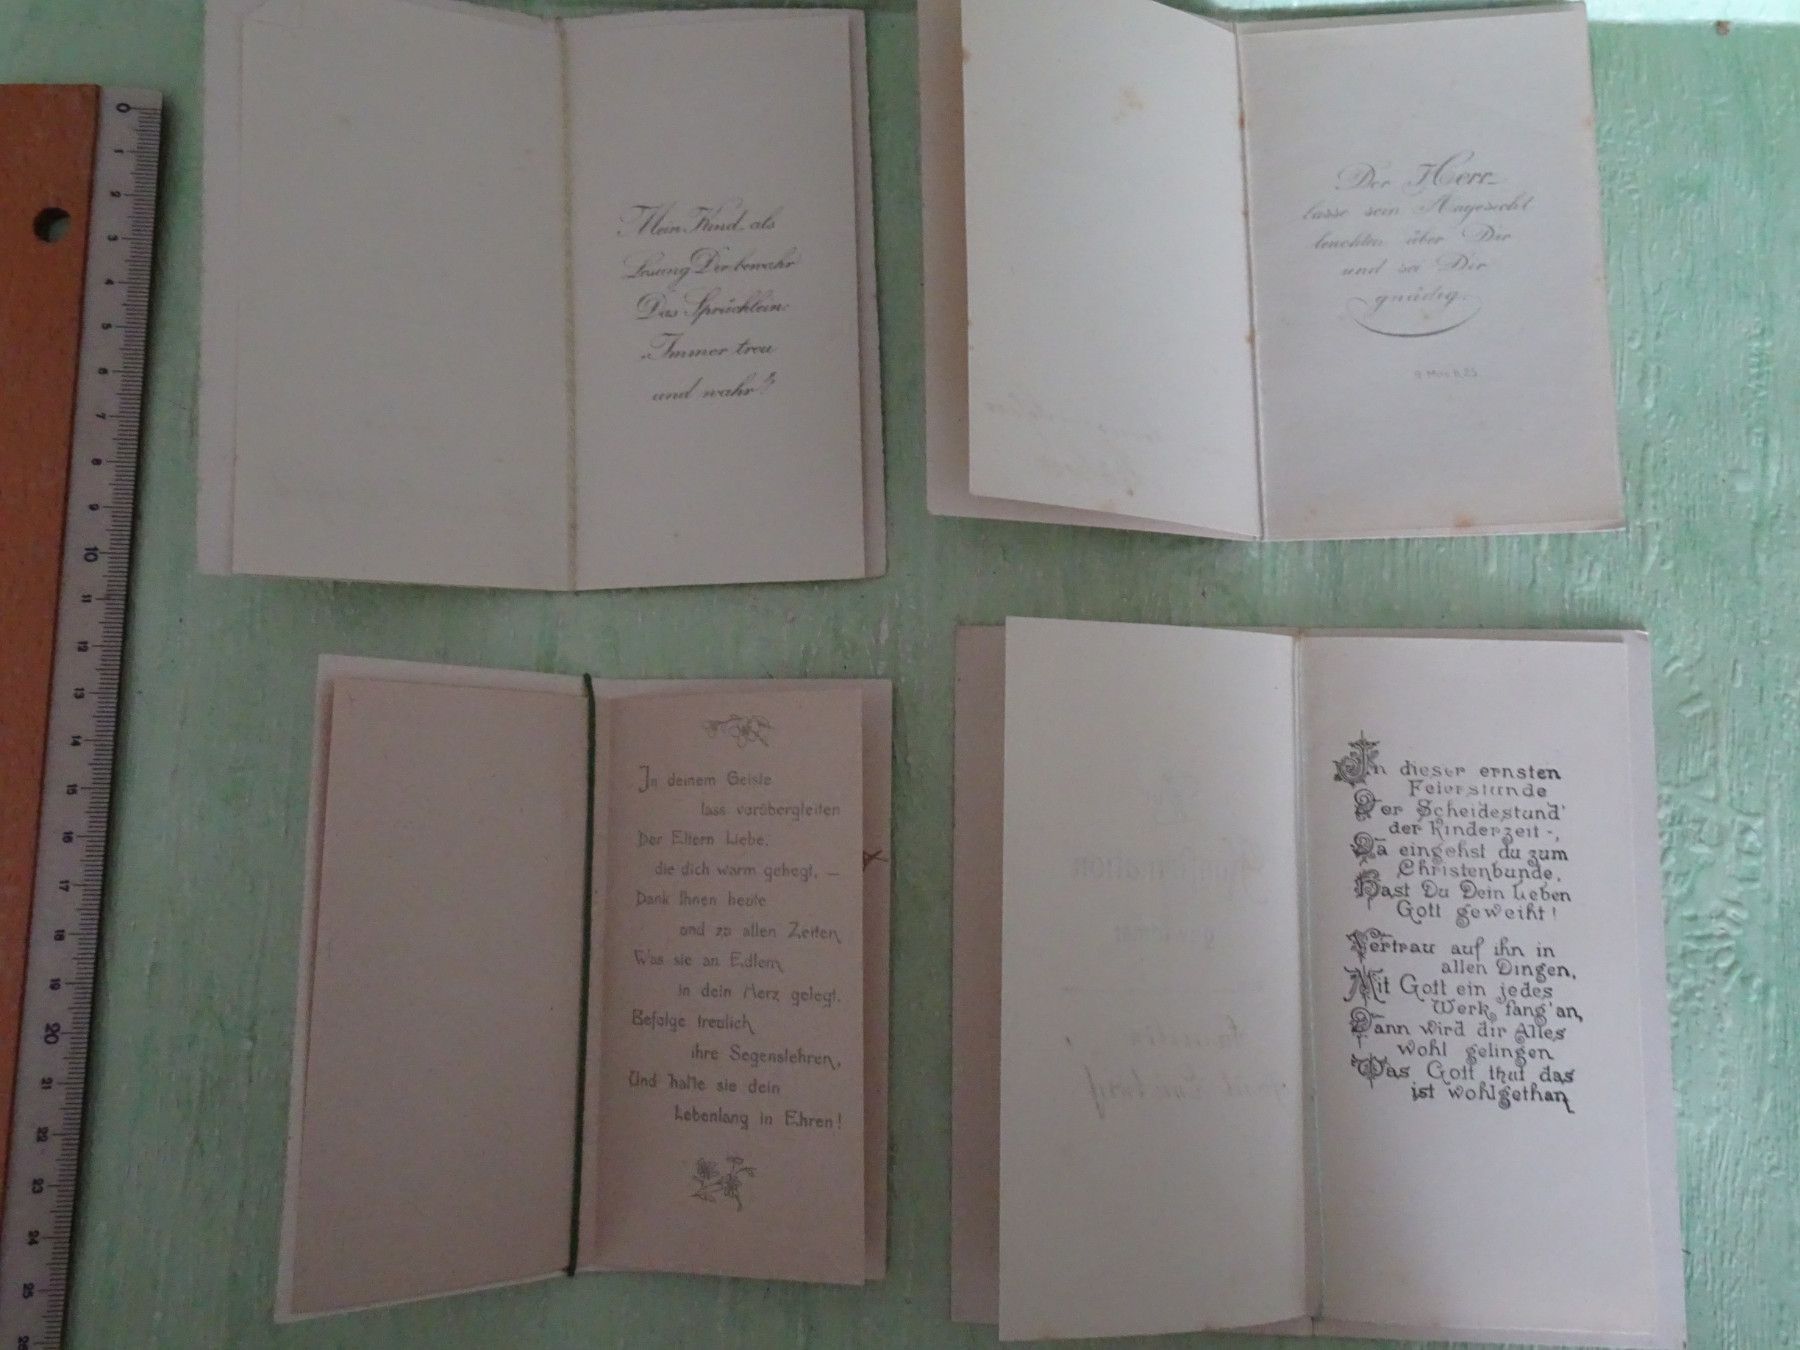 Mein Kind als
Losung Dir bewahr
Das Sprüchlein:
„Immer treu
und wahr“
Der Herr
lasse sein Angesicht
leuchten über Dir
und sei Dir
gnädig.
In deinem Geiste
lass vorübergleiten
Der Eltern Liebe,
die dich warm gehegt, —
Dank Ihnen heute
und zu allen Zeiten,
Was sie an Edlem
in dein Herz gelegt.
Befolge treulich
ihre Segenslehren,
Und halte sie dein
Lebenlang in Ehren!
In dieser ernsten
Feierstunde
Der Scheidestund'
der Kinderzeit -,
Da eingehst du zum
Christenbunde,
Hast Du Dein Leben
Gott geweiht!
Vertrau auf ihn in
allen Dingen,
Mit Gott ein jedes
Werk fang'an,
Dann wird dir Alles
wohl gelingen
Was Gott thut das
ist wohlgethan
0
1
2
3
4
5
6
7
8
9
10
11
12
13
14
15
16
17
18
19
20
21
22
23
24
25